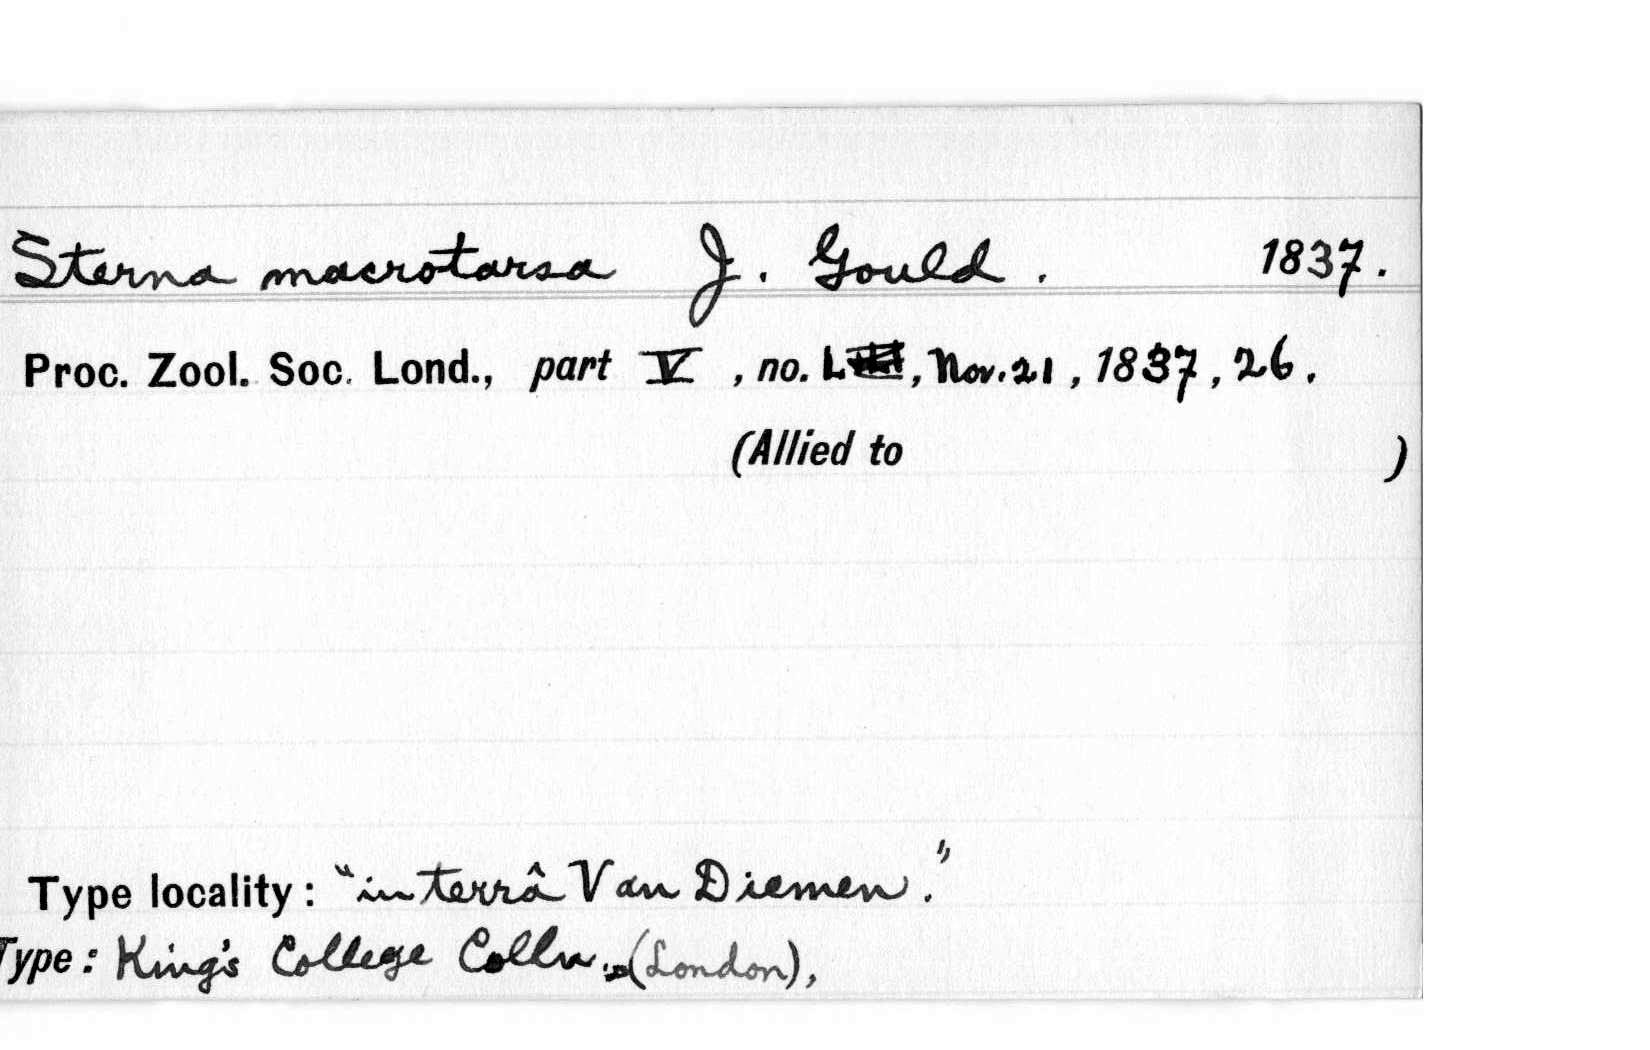 Sterna macrotarsa J. Gould. 1837.
Proc. Zool. Soc. Lond., part V, no. L, Nov. 21, 1837, 26.
(Allied to )
Type locality: "in terrâ Van Diemen."
Type: King's College Colln. (London),